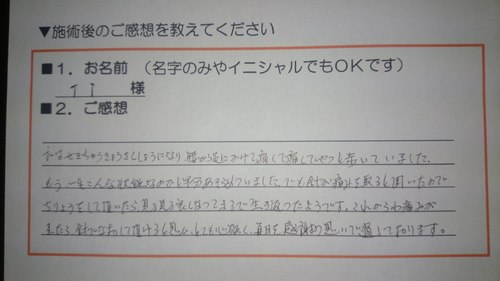 ▼施術後のご感想を教えてください
■1. お名前 (名字のみやイニシャルでもOKです)
T I 様
■2. ご感想
私はせきちゅうきょうさくしょうになり 腰から足にかけて痛くて痛くてやっと歩いていました。
もう一生こんな状態なのかと半分あきらめていました。でも針が痛みを取ると聞いたので
ちりょうをして頂いたら見る見る良くなってまるで生き返ったようです。これからわ痛みが
きたら針でなおして頂けると思い、とても心強く、毎日を感謝の思いで過しております。